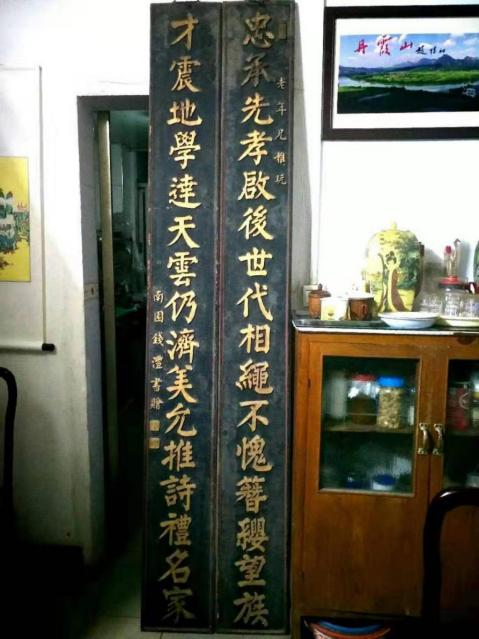 忠承先孝啟後世代相繩不愧簪纓望族
老年兄雅玩
才震地學達天雲仍濟美允推詩禮名家
南園錢灃書贈
丹霞山